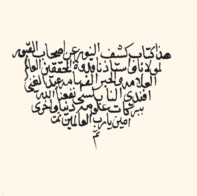 هذا كتاب كشف النور عن اصحاب القبور
لمولانا واستاذنا قدوة المحققين العالم
العلامه والحبر الفهامه عبد الغني
افندي النابلسي نفعنا الله
ببركات علومه دنيا واخرى
امين يا رب العالمين
تم